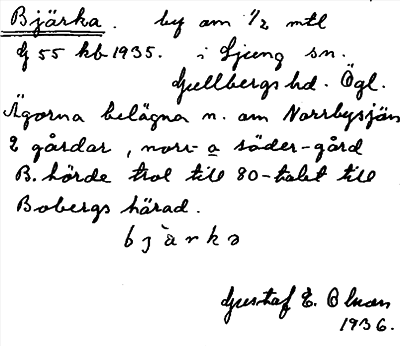 Bjärka. by om 1/2 mtl
G 55 kb 1935. i Ljung sn.
Gullbergs hd. Ögl.
Ägorna belägna n. om Norrbysjön
2 gårdar, norr- o söder-gård
B. hörde trol till 80-talet till
Bobergs härad.
bjärka
Gustaf E. Olson
1936.